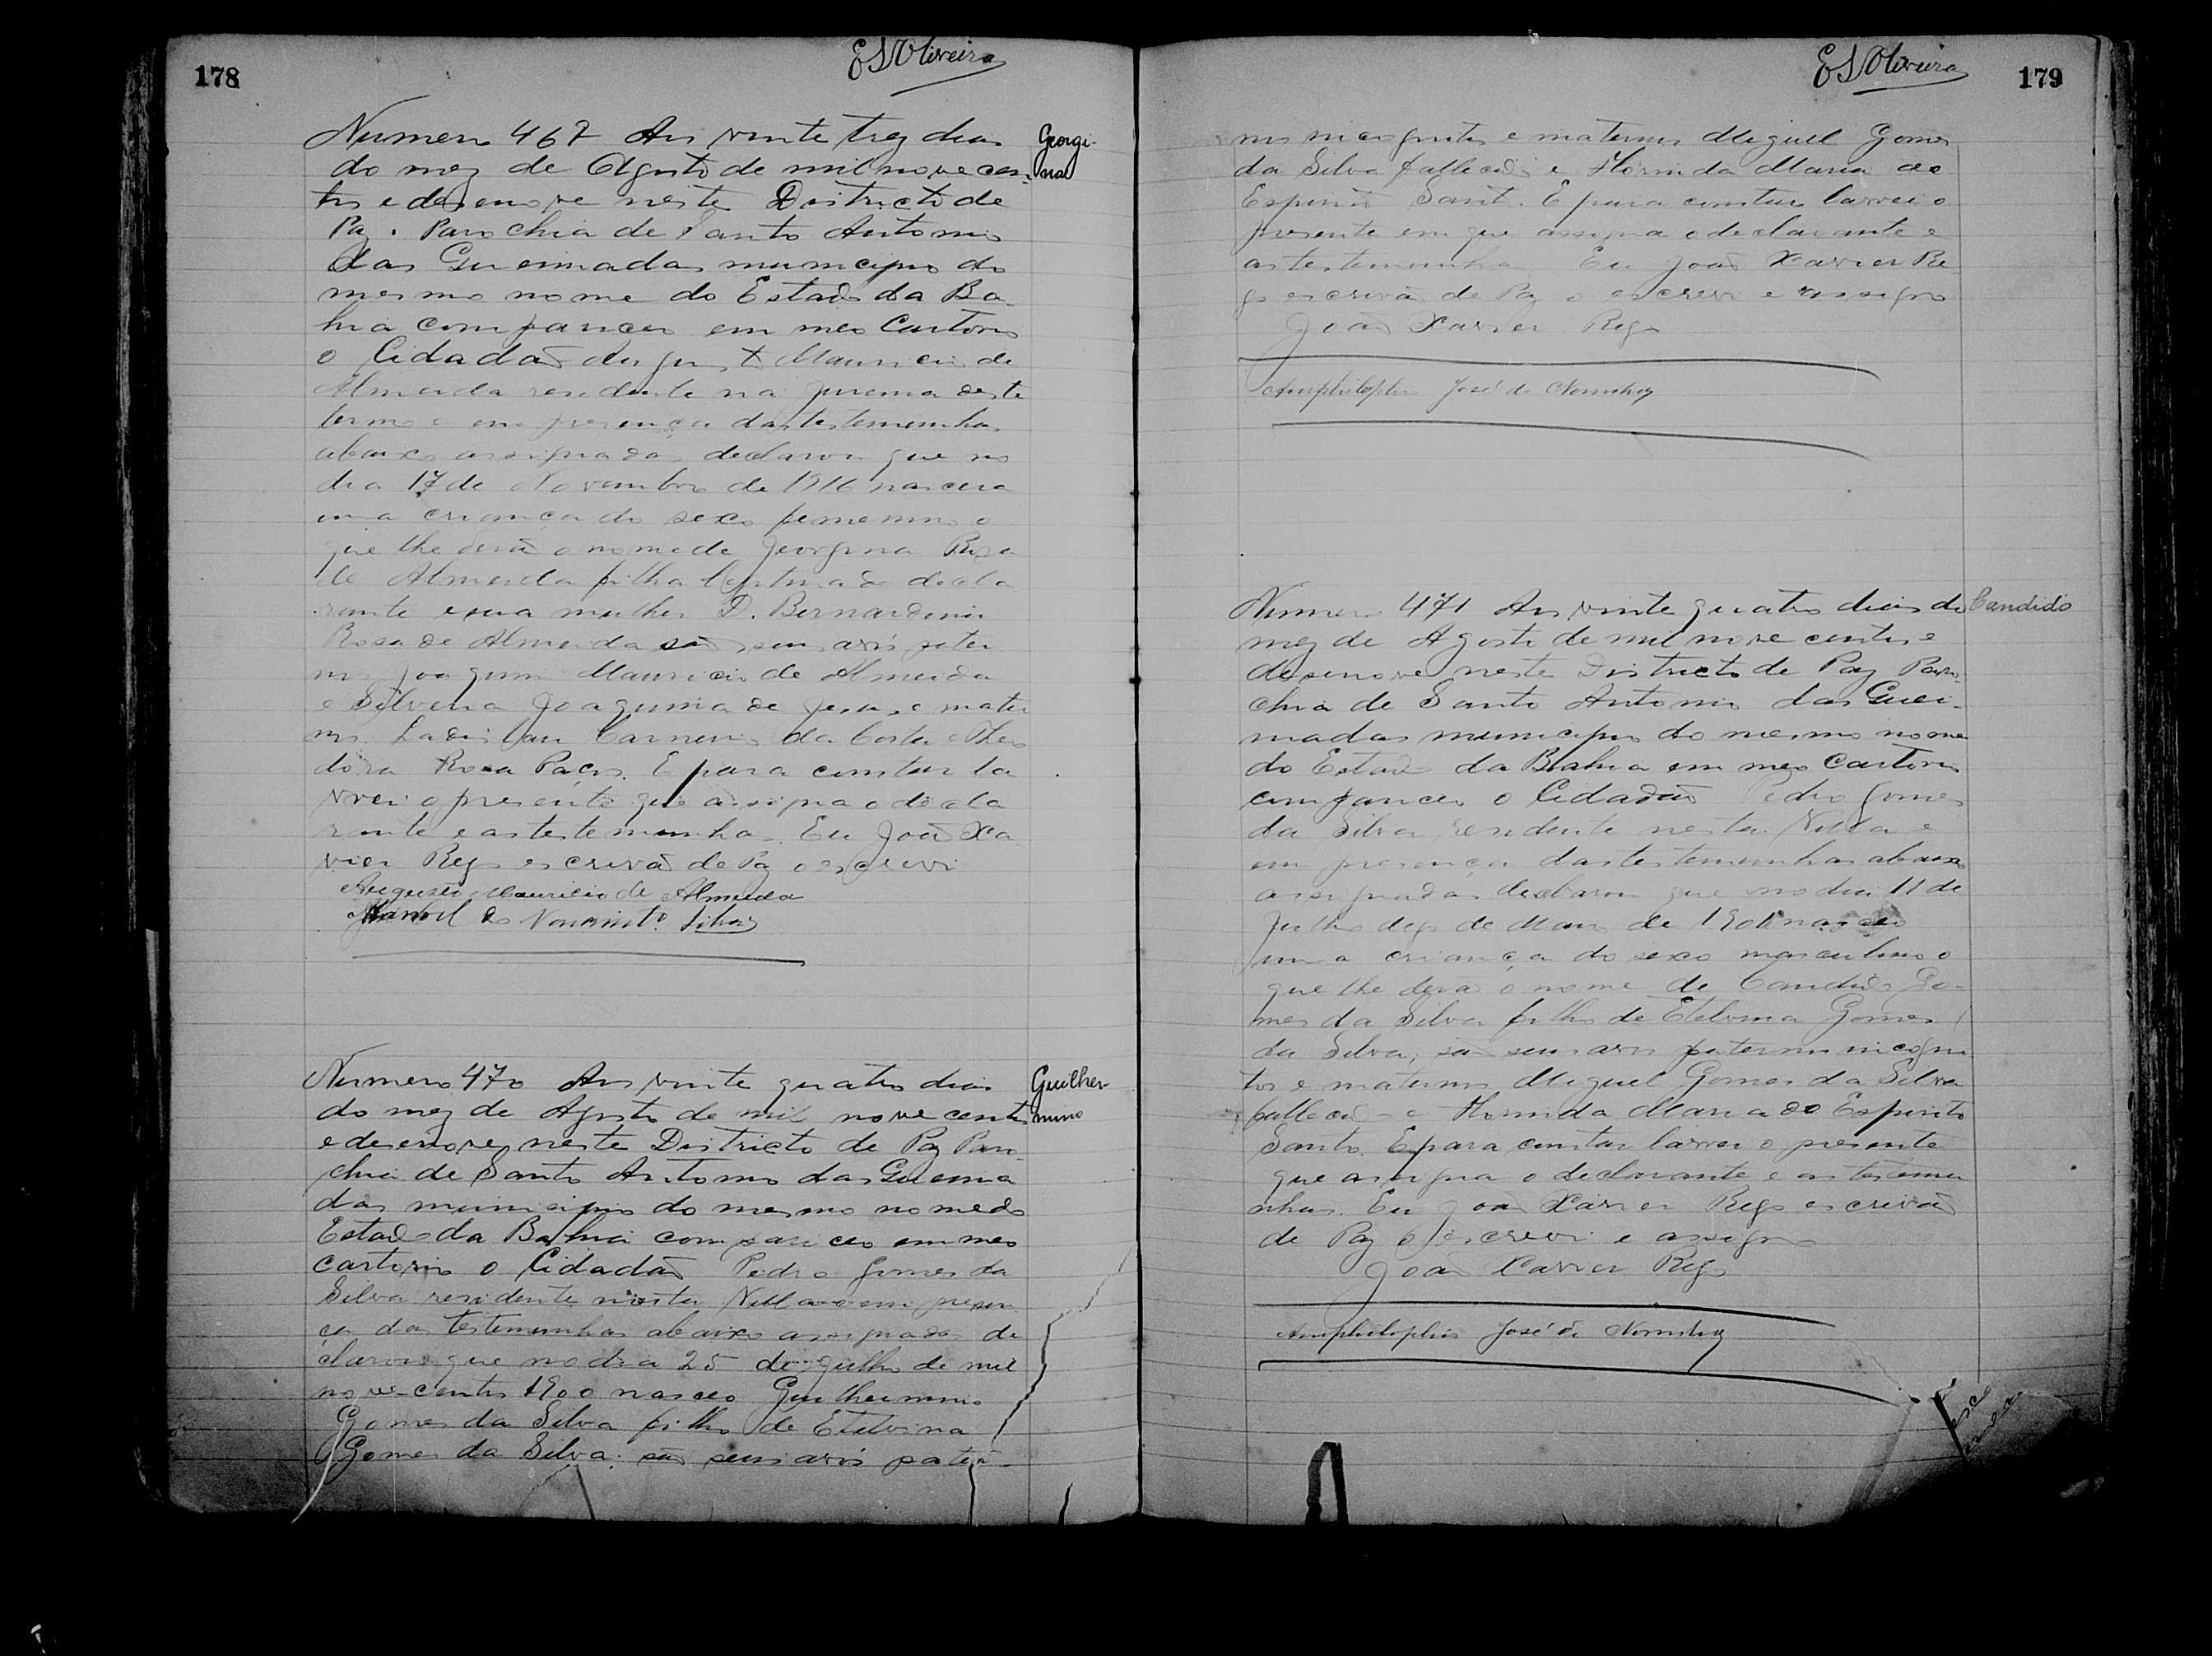 178
ESOliveira
Numero 467 Aos vinte trez dias
Georgi-
na
do mez de Agosto de mil nove cen-
tos e desenove neste Districto de
Paz. Parochia de Santo Antonio
das Queimadas municipio do
mesmo nome do Estado da Ba-
hia compareceu em meo Cartorio
o Cidadão Augusto Mauricio de
Almeida residente na Jurema deste
termo e em presença das testemunhas
abaixo assignadas, declarou que no
dia 17 de Novembro de 1916 nascera
uma criança do sexo femenino o
que lhe derão o nome de Georgina Roza
de Almeida filha legitima do decla
rante e sua mulher D. Bernardina
Rosa de Almeida são seus avós pater
nos Joaquim Mauricio de Almeida
e Silveria Joaquina de Jesus e mater
nos Ladislau Carneiro da Costa e Theo
dora Rosa. E para constar la
vrei o presente que assigna o decla
rante e as testemunhas. Eu João Xa
vier Rego escrivão de Paz o escrevi
Augusto Mauricio de Almeida
Manoel do
Numero 470 Aos vinte quatro dias
Guilher-
mino
do mez de Agosto de mil nove centos
e desenove, neste Districto de Paz Paro-
chia de Santo Antonio das Queima
das municipio do mesmo nome do
Estado da Bahia compareceo em meo
cartorio o Cidadão Pedro Gomes da
Silva residente nesta Villa e em presen
ça das testemunhas abaixo assignadas de
clarou que no dia 25 de Julho de mil
nove centos 1900 nasceo Guilhermino
Gomes da Silva filho de Etelvina
Gomes da Silva; são seus avós pater-
ESOliveira
179
nos incognitos e maternos Miguel Gomes
da Silva fallecido e Florinda Maria do
Espirito Santo. E para constar lavrei o
presente em que assigna o declarante e
as testemunhas. Eu João Xavier Re
go escrivão de Paz o escrevi e assigno
João Xavier Rego
Amphilophio José de
Numero 471 Aos vinte quatro dias do
Candido
mez de Agosto de mil nove centos e
desenove neste Districto de Paz Paro-
chia de Santo Antonio das Quei-
madas municipio do mesmo nome
do Estado da Bahia em meo Cartorio
compareceo o Cidadão Pedro Gomes
da Silva residente nesta Villa e
em presença das testemunhas abaixo
assignadas declarou que no dia 11 de
Julho digo de Maio de nasceo
uma criança do sexo masculino o
que lhe derão o nome de Candido Go-
mes da Silva filho de Etelvina Gomes
da Silva; são seus avós paternos incogni
tos e maternos Miguel Gomes da Silva
fallecido e Florinda Maria do Espirito
Santo. E para constar lavrei o presente
que assigna o declarante e as testemu
nhas. Eu João Xavier Rego escrivão
de Paz o escrevi e assigno
João Xavier Rego
Amphilophio José de